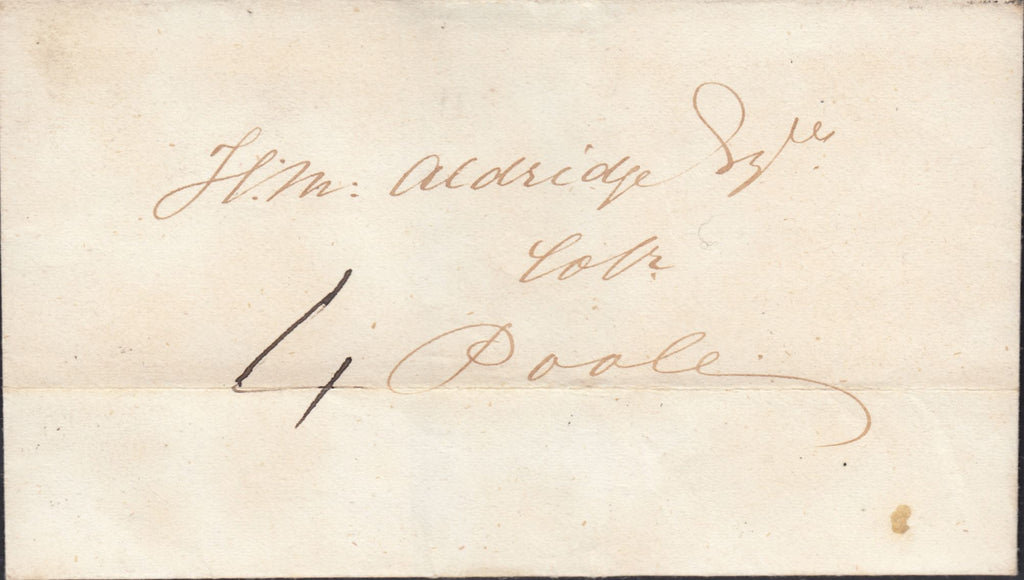 H. M. Aldridge Esqre
Solr.
4 Poole